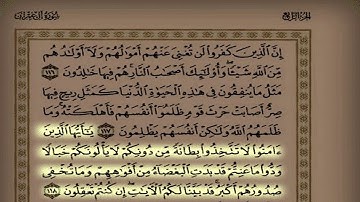 الجزء الرابع
سورة آل عمران
إِنَّ ٱلَّذِينَ كَفَرُوا۟ لَن تُغْنِىَ عَنْهُمْ أَمْوَٰلُهُمْ وَلَآ أَوْلَٰدُهُم
مِّنَ ٱللَّهِ شَيْـًٔا ۖ وَأُو۟لَٰٓئِكَ أَصْحَٰبُ ٱلنَّارِ ۚ هُمْ فِيهَا خَٰلِدُونَ ١١٦
مَثَلُ مَا يُنفِقُونَ فِى هَٰذِهِ ٱلْحَيَوٰةِ ٱلدُّنْيَا كَمَثَلِ رِيحٍ فِيهَا
صِرٌّ أَصَابَتْ حَرْثَ قَوْمٍ ظَلَمُوٓا۟ أَنفُسَهُمْ فَأَهْلَكَتْهُ ۚ وَمَا
ظَلَمَهُمُ ٱللَّهُ وَلَٰكِنْ أَنفُسَهُمْ يَظْلِمُونَ ١١٧ يَٰٓأَيُّهَا ٱلَّذِينَ
ءَامَنُوا۟ لَا تَتَّخِذُوا۟ بِطَانَةً مِّن دُونِكُمْ لَا يَأْلُونَكُمْ خَبَالًا
وَدُّوا۟ مَا عَنِتُّمْ قَدْ بَدَتِ ٱلْبَغْضَآءُ مِنْ أَفْوَٰهِهِمْ وَمَا تُخْفِى
صُدُورُهُمْ أَكْبَرُ ۚ قَدْ بَيَّنَّا لَكُمُ ٱلْءَايَٰتِ ۖ إِن كُنتُمْ تَعْقِلُونَ ١١٨